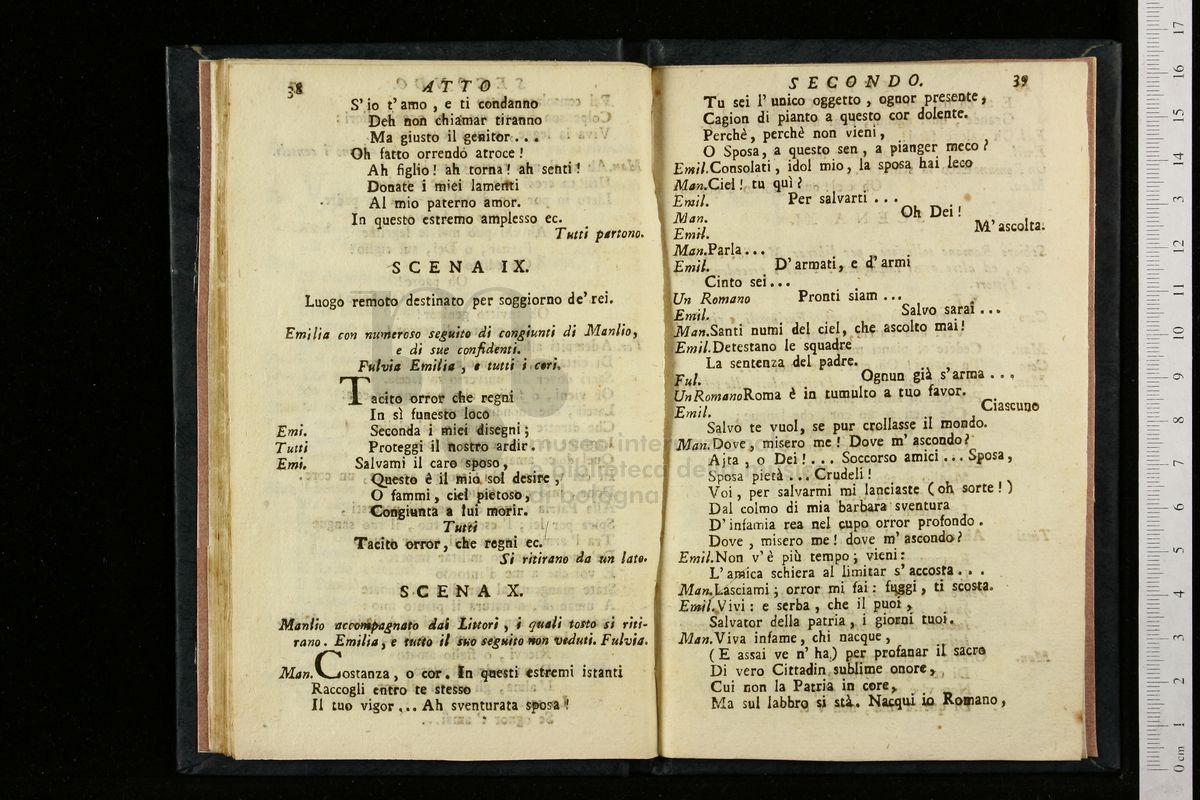 38 ATTO
S' io t' amo , e ti condanno
Deh non chiamar tiranno
Ma giusto il genitor . . .
Oh fatto orrendo atroce !
Ah figlio ! ah torna ! ah senti !
Donate i miei lamenti
Al mio paterno amor.
In questo estremo amplesso ec.
Tutti partono.
SCENA IX.
Luogo remoto destinato per soggiorno de' rei.
Emilia con numeroso seguito di congiunti di Manlio,
e di sue confidenti.
Fulvia Emilia , e tutti i cori.
Tacito orror che regni
In sì funesto loco
Emi. Seconda i miei disegni ;
Tutti Proteggi il nostro ardir.
Emi. Salvami il caro sposo,
Questo è il mio sol desire ,
O fammi, ciel pietoso,
Congiunta a lui morir.
Tutti
Tacito orror, che regni ec.
Si ritirano da un lato.
SCENA X.
Manlio accompagnato dai Littori , i quali tosto si riti-
rano . Emilia, e tutto il suo seguito non veduti. Fulvia.
Man. Costanza, o cor. In questi estremi istanti
Raccogli entro te stesso
Il tuo vigor ... Ah sventurata sposa !
SECONDO. 39
Tu sei l' unico oggetto , ognor presente,
Cagion di pianto a questo cor dolente.
Perchè, perchè non vieni,
O Sposa, a questo sen, a pianger meco ?
Emil. Consolati , idol mio, la sposa hai teco
Man. Ciel ! tu quì ?
Emil. Per salvarti . . .
Man. Oh Dei !
Emil. M' ascolta.
Man. Parla . . .
Emil. D' armati, e d' armi
Cinto sei . . .
Un Romano Pronti siam . . .
Emil. Salvo sarai . . .
Man. Santi numi del ciel, che ascolto mai !
Emil. Detestano le squadre
La sentenza del padre.
Ful. Ognun già s' arma . . .
Un Romano Roma è in tumulto a tuo favor.
Emil. Ciascuno
Salvo te vuol, se pur crollasse il mondo.
Man. Dove , misero me ! Dove m' ascondo ?
Ajta , o Dei ! . . . Soccorso amici . . . Sposa ,
Sposa pietà . . . Crudeli !
Voi , per salvarmi mi lanciaste ( oh sorte ! )
Dal colmo di mia barbara sventura
D' infamia rea nel cupo orror profondo .
Dove , misero me ! dove m' ascondo ?
Emil. Non v' è più tempo ; vieni :
L' amica schiera al limitar s' accosta . . .
Man. Lasciami ; orror mi fai : fuggi , ti scosta.
Emil. Vivi : e serba , che il puoi ,
Salvator della patria , i giorni tuoi.
Man. Viva infame, chi nacque ,
( E assai ve n' ha ) per profanar il sacro
Di vero Cittadin sublime onore ,
Cui non la Patria in core,
Ma sul labbro si stà. Nacqui io Romano,